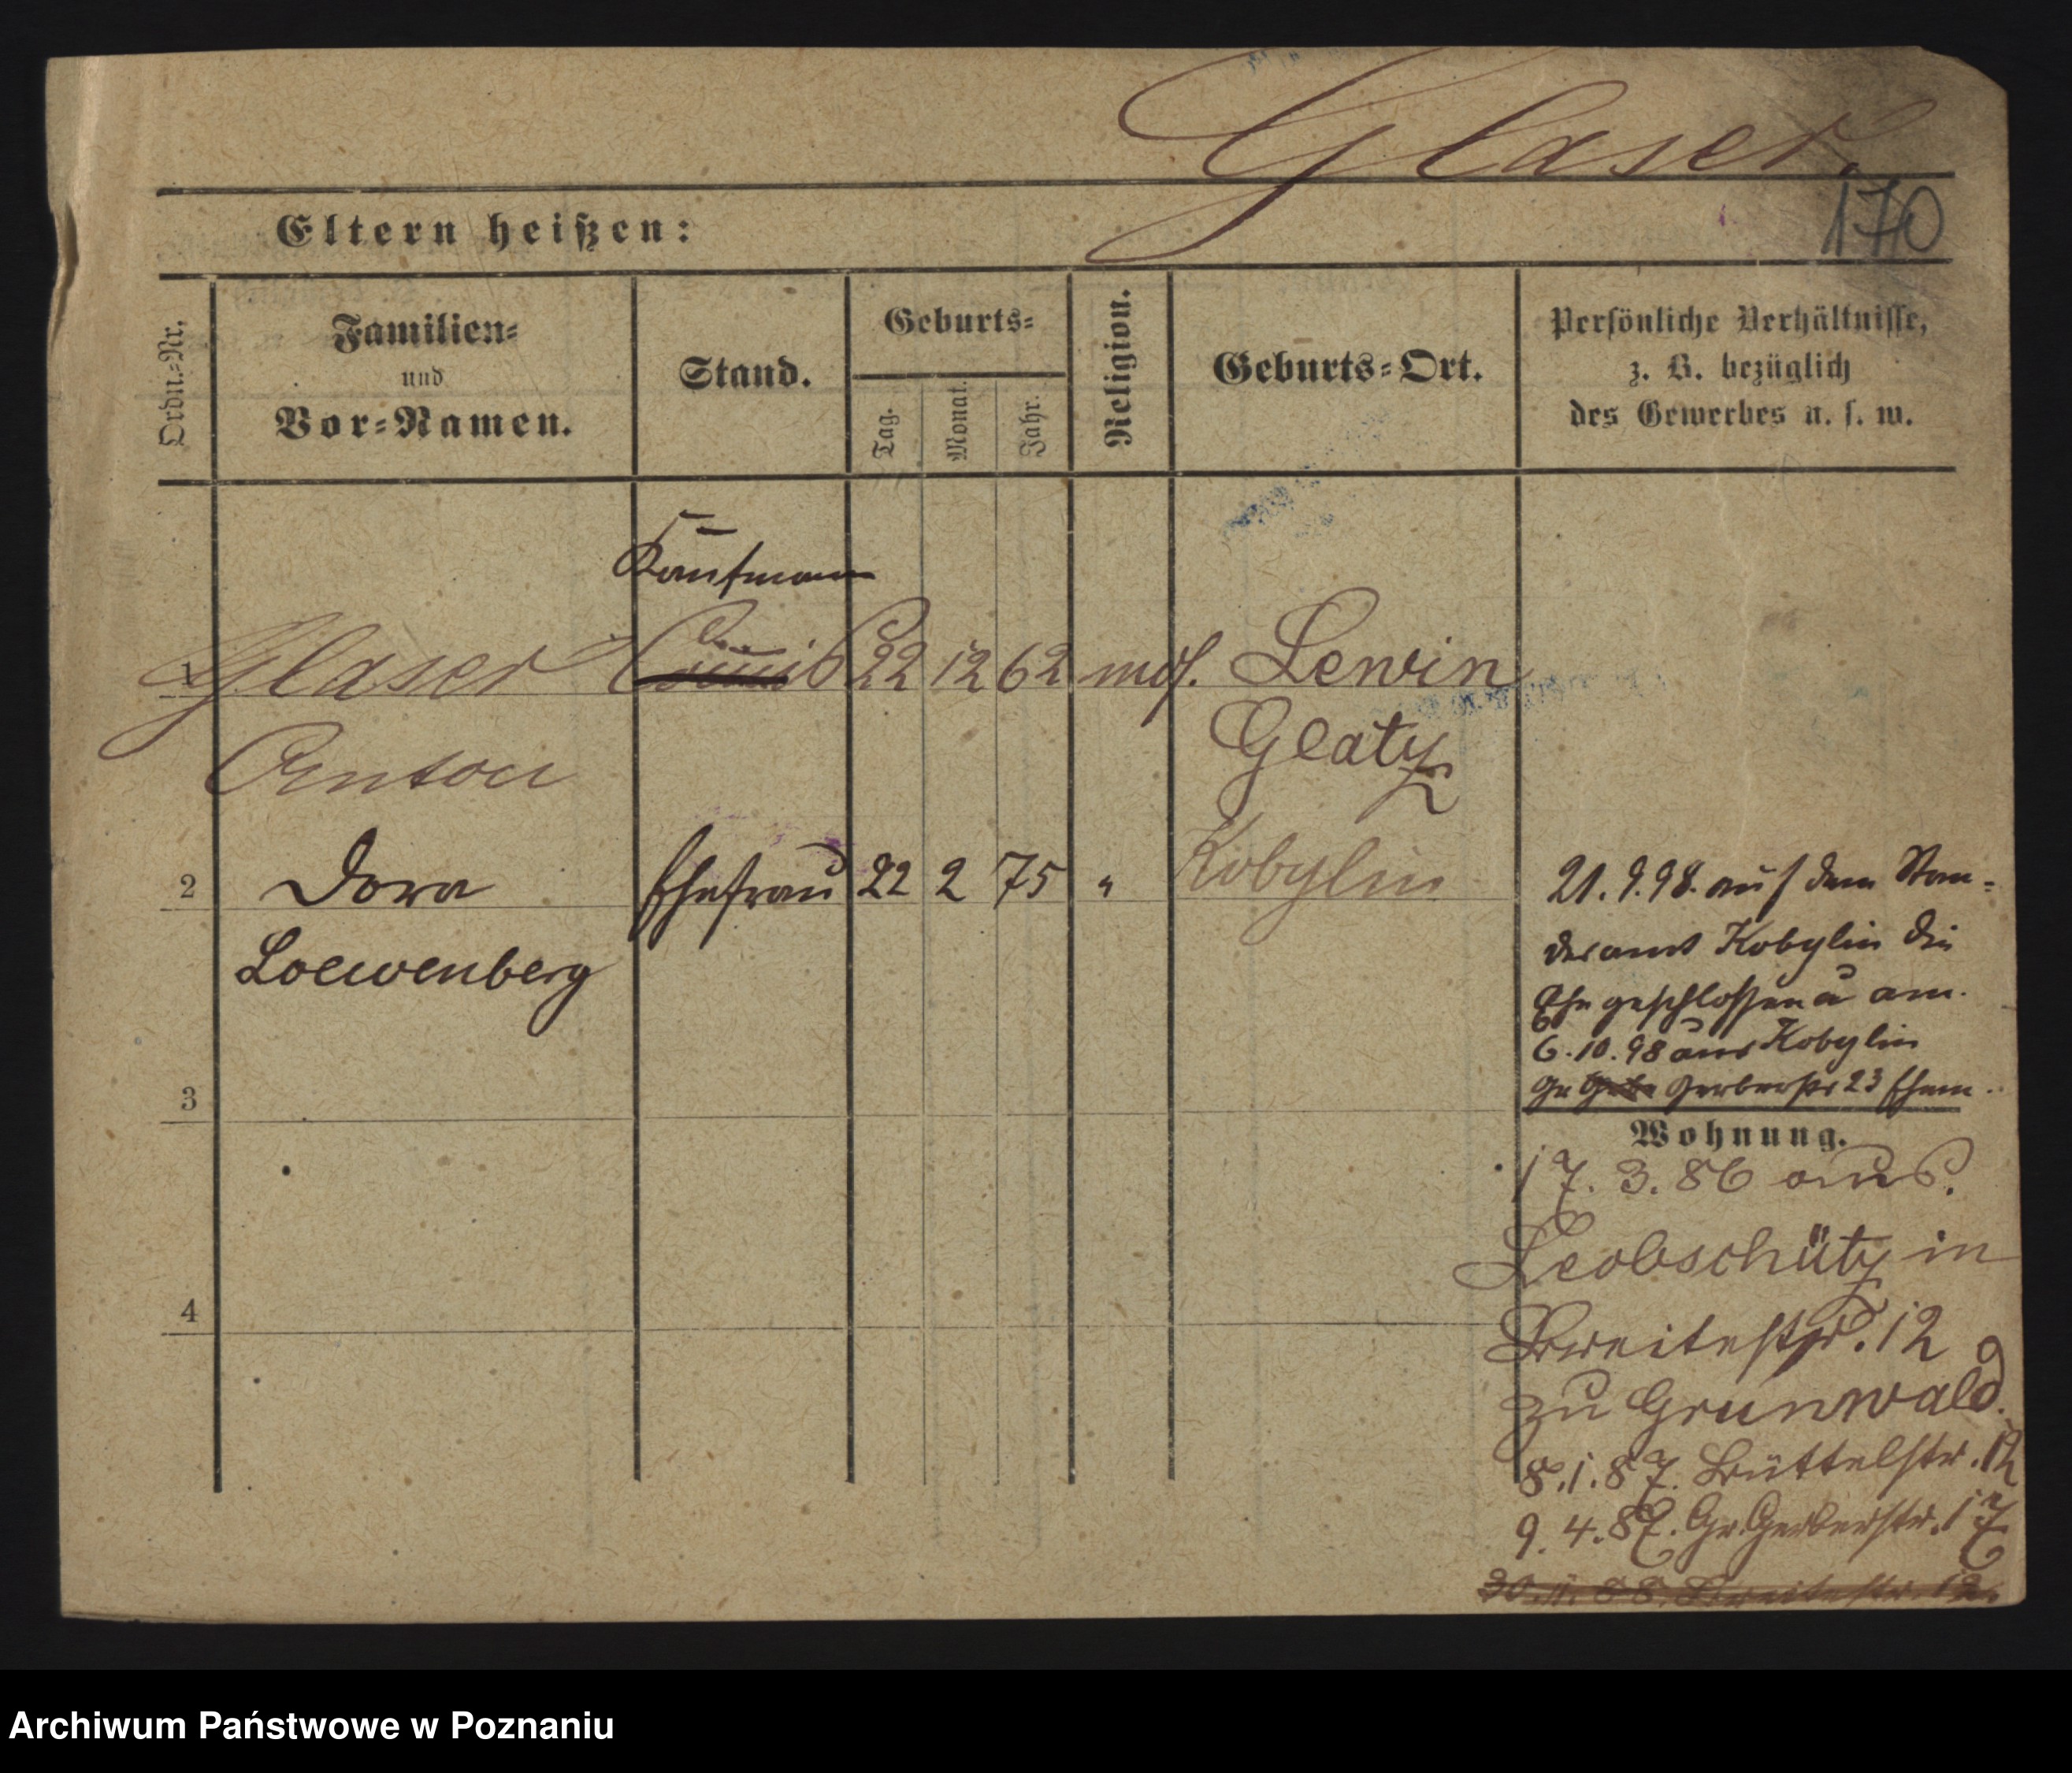 Glaser.
170
Eltern heißen:
Ordn.-Nr.
Familien-
und
Vor-Namen.
Stand.
Geburts-
Tag.
Monat.
Jahr.
Religion.
Geburts-Ort.
Persönliche Verhältnisse,
z. B. bezüglich
des Gewerbes u. s. w.
Kaufmann
1 Glaser Commis 22 12 62 mos. Lewin
Anton
Glatz
2 Dora Ehefrau 22 2 75 " Kobylin
Loewenberg
21.9.98. auf dem Stan-
desamt Kobylin die
Ehe geschlossen u am
6.10.98 aus Kobylin
Gr Gerberstr 23 Ehem.
3
Wohnung.
17. 3. 86 aus.
Leobschütz in
4
Breitestr. 12
zu Grunwald.
8.1.87. Büttelstr. 12
9. 4. 87. Gr. Gerberstr. 17
30.11.88. Breitestr. 12.
Archiwum Państwowe w Poznaniu